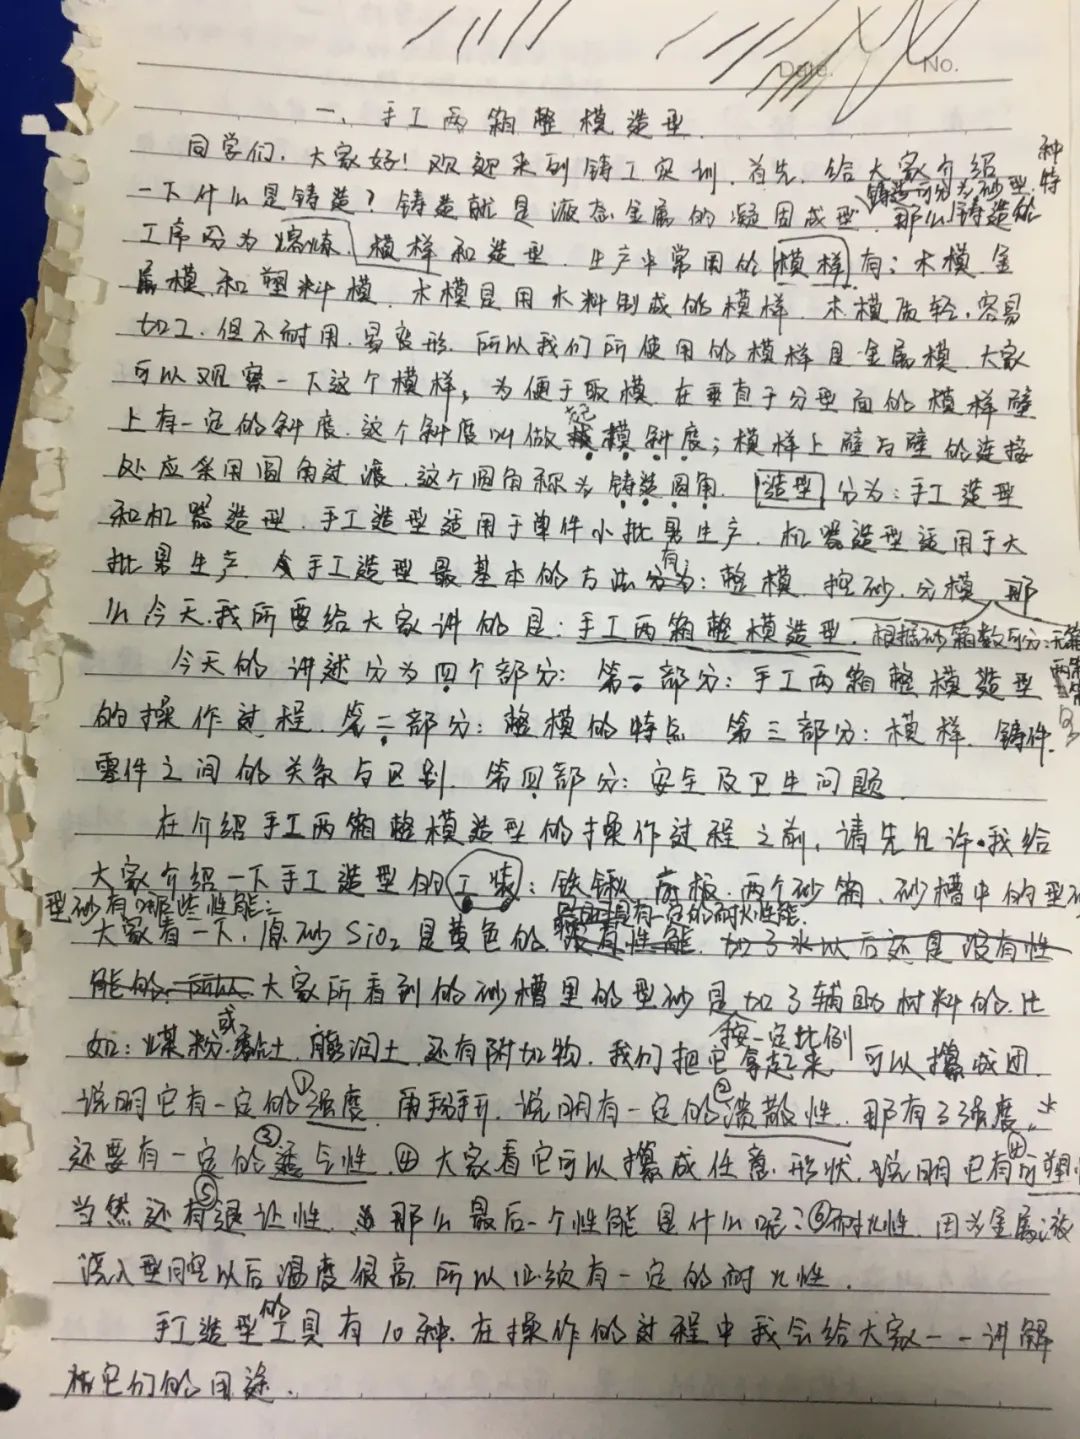 Date.
No.
一、手工两箱整模造型
同学们，大家好！欢迎来到铸工实训，首先，给大家介绍
一下什么是铸造？铸造就是液态金属的凝固成型，铸造可分为砂型、特种 那么铸造的
工序分为熔炼、模样和造型。生产中常用的模样有：木模、金
属模和塑料模。木模是用木料制成的模样，木模质轻，容易
加工，但不耐用，易变形，所以我们所使用的模样是金属模，大家
可以观察一下这个模样，为便于取模，在垂直于分型面的模样壁
上有一定的斜度，这个斜度叫做起模斜度；模样上壁与壁的连接
处应采用圆角过渡，这个圆角称为铸造圆角。造型分为：手工造型
和机器造型，手工造型适用于单件小批量生产，机器造型适用于大
批量生产，手工造型最基本的方法有：整模、挖砂、分模，那
么今天，我所要给大家讲的是：手工两箱整模造型。根据砂箱数可分：无箱 两箱
今天的讲述分为四个部分：第一部分：手工两箱整模造型
的操作过程，第二部分：整模的特点 第三部分：模样、铸件、
零件之间的关系与区别，第四部分：安全及卫生问题。
在介绍手工两箱整模造型的操作过程之前，请先允许我给
大家介绍一下手工造型的工装：铁锹、底板、两个砂箱、砂槽中的型砂
型砂有哪些性能？
大家看一下，原砂SiO₂是黄色的 具有一定的耐火性能 没有性能，加了水以后还是没有性
能的，所以大家所看到的砂槽里的型砂是加了辅助材料的，比
如：煤粉或黏土、膨润土，还有附加物，按一定比例 我们把它拿起来，可以攥成团，
说明它有一定的①强度，再掰开，说明有一定的②溃散性，那有了强度，
还要有一定的③透气性，④大家看它可以攥成任意形状，说明它有④可塑性
当然还有⑤退让性，那么最后一个性能是什么呢？⑥耐火性，因为金属液
浇入型腔以后温度很高，所以必须有一定的耐火性。
手工造型的工具有10种，在操作的过程中我会给大家一一讲解
它们的用途。